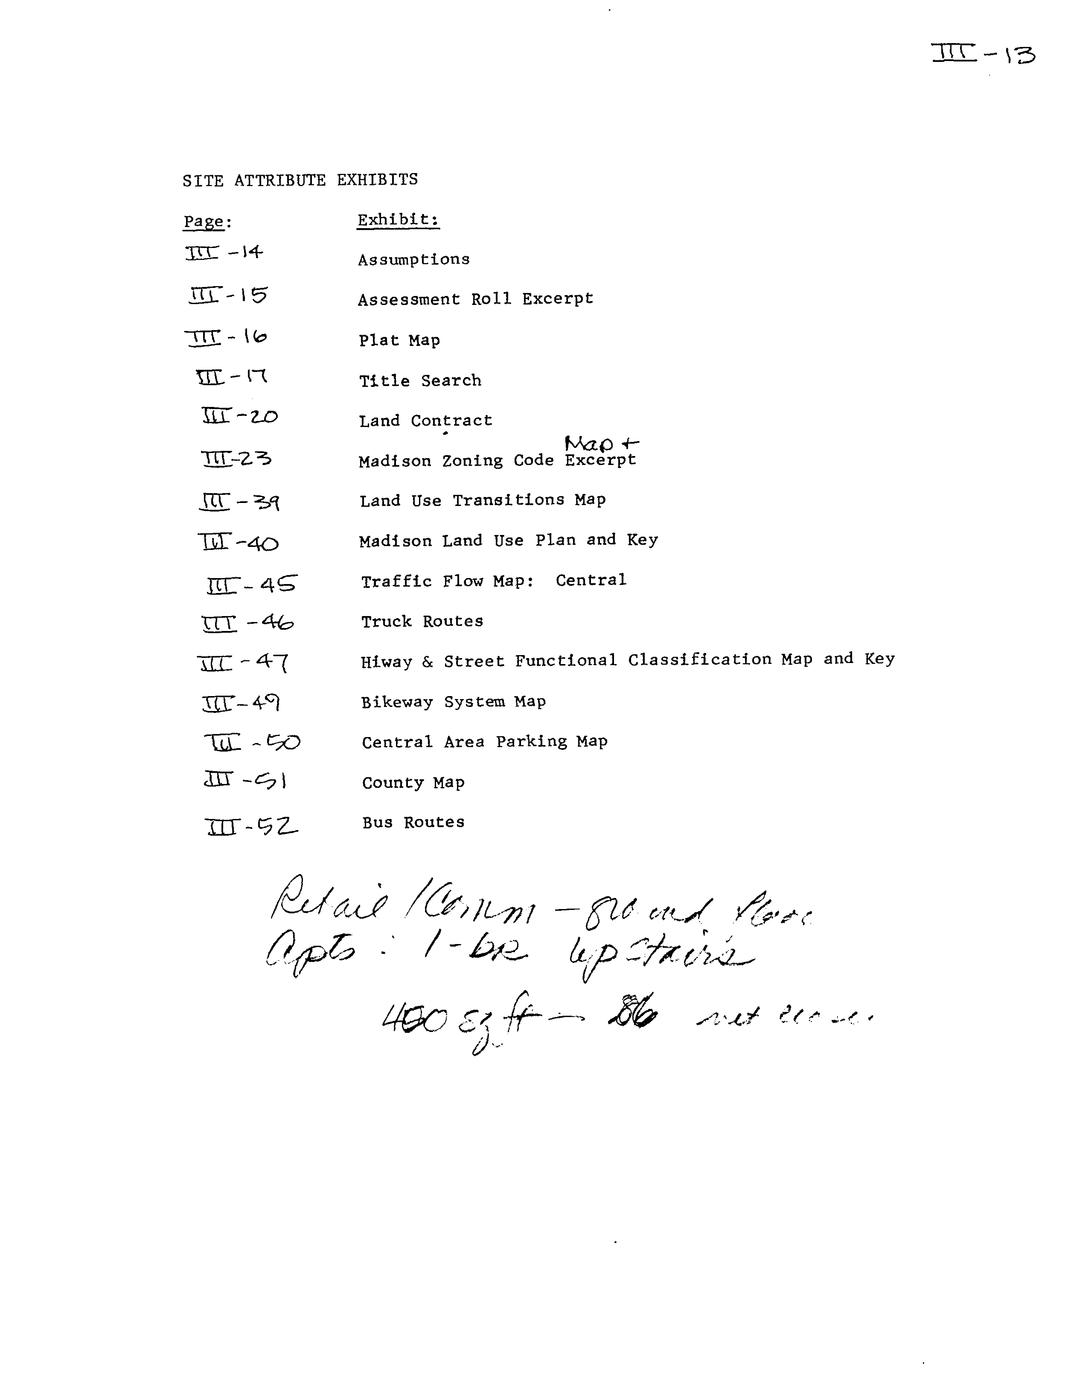 III-13
SITE ATTRIBUTE EXHIBITS
Page: Exhibit:
III-14 Assumptions
III-15 Assessment Roll Excerpt
III-16 Plat Map
III-17 Title Search
III-20 Land Contract
Map +
III-23 Madison Zoning Code Excerpt
III-39 Land Use Transitions Map
III-40 Madison Land Use Plan and Key
III-45 Traffic Flow Map: Central
III-46 Truck Routes
III-47 Hiway & Street Functional Classification Map and Key
III-49 Bikeway System Map
III-50 Central Area Parking Map
III-51 County Map
III-52 Bus Routes
Retail / Comm - ground floor
Apts: 1-br upstairs
sq ft - net